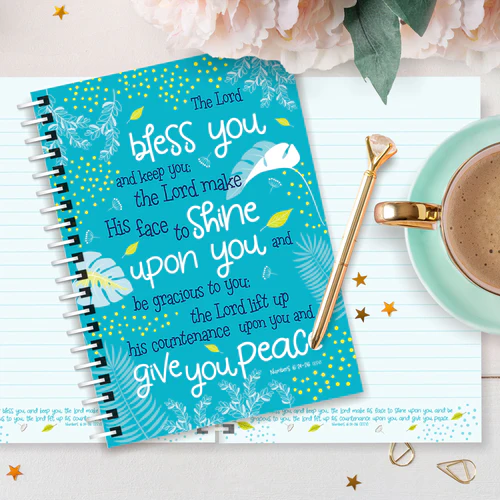 The Lord
bless you
and keep you;
the Lord make
His face to Shine
upon you and
be gracious to you;
the Lord lift up
his countenance upon you and
give you Peace
Numbers 6:24-26
bless you and keep you, the Lord make his face to shine upon you and be
gracious to you, the Lord lift up his countenance upon you and give you peace